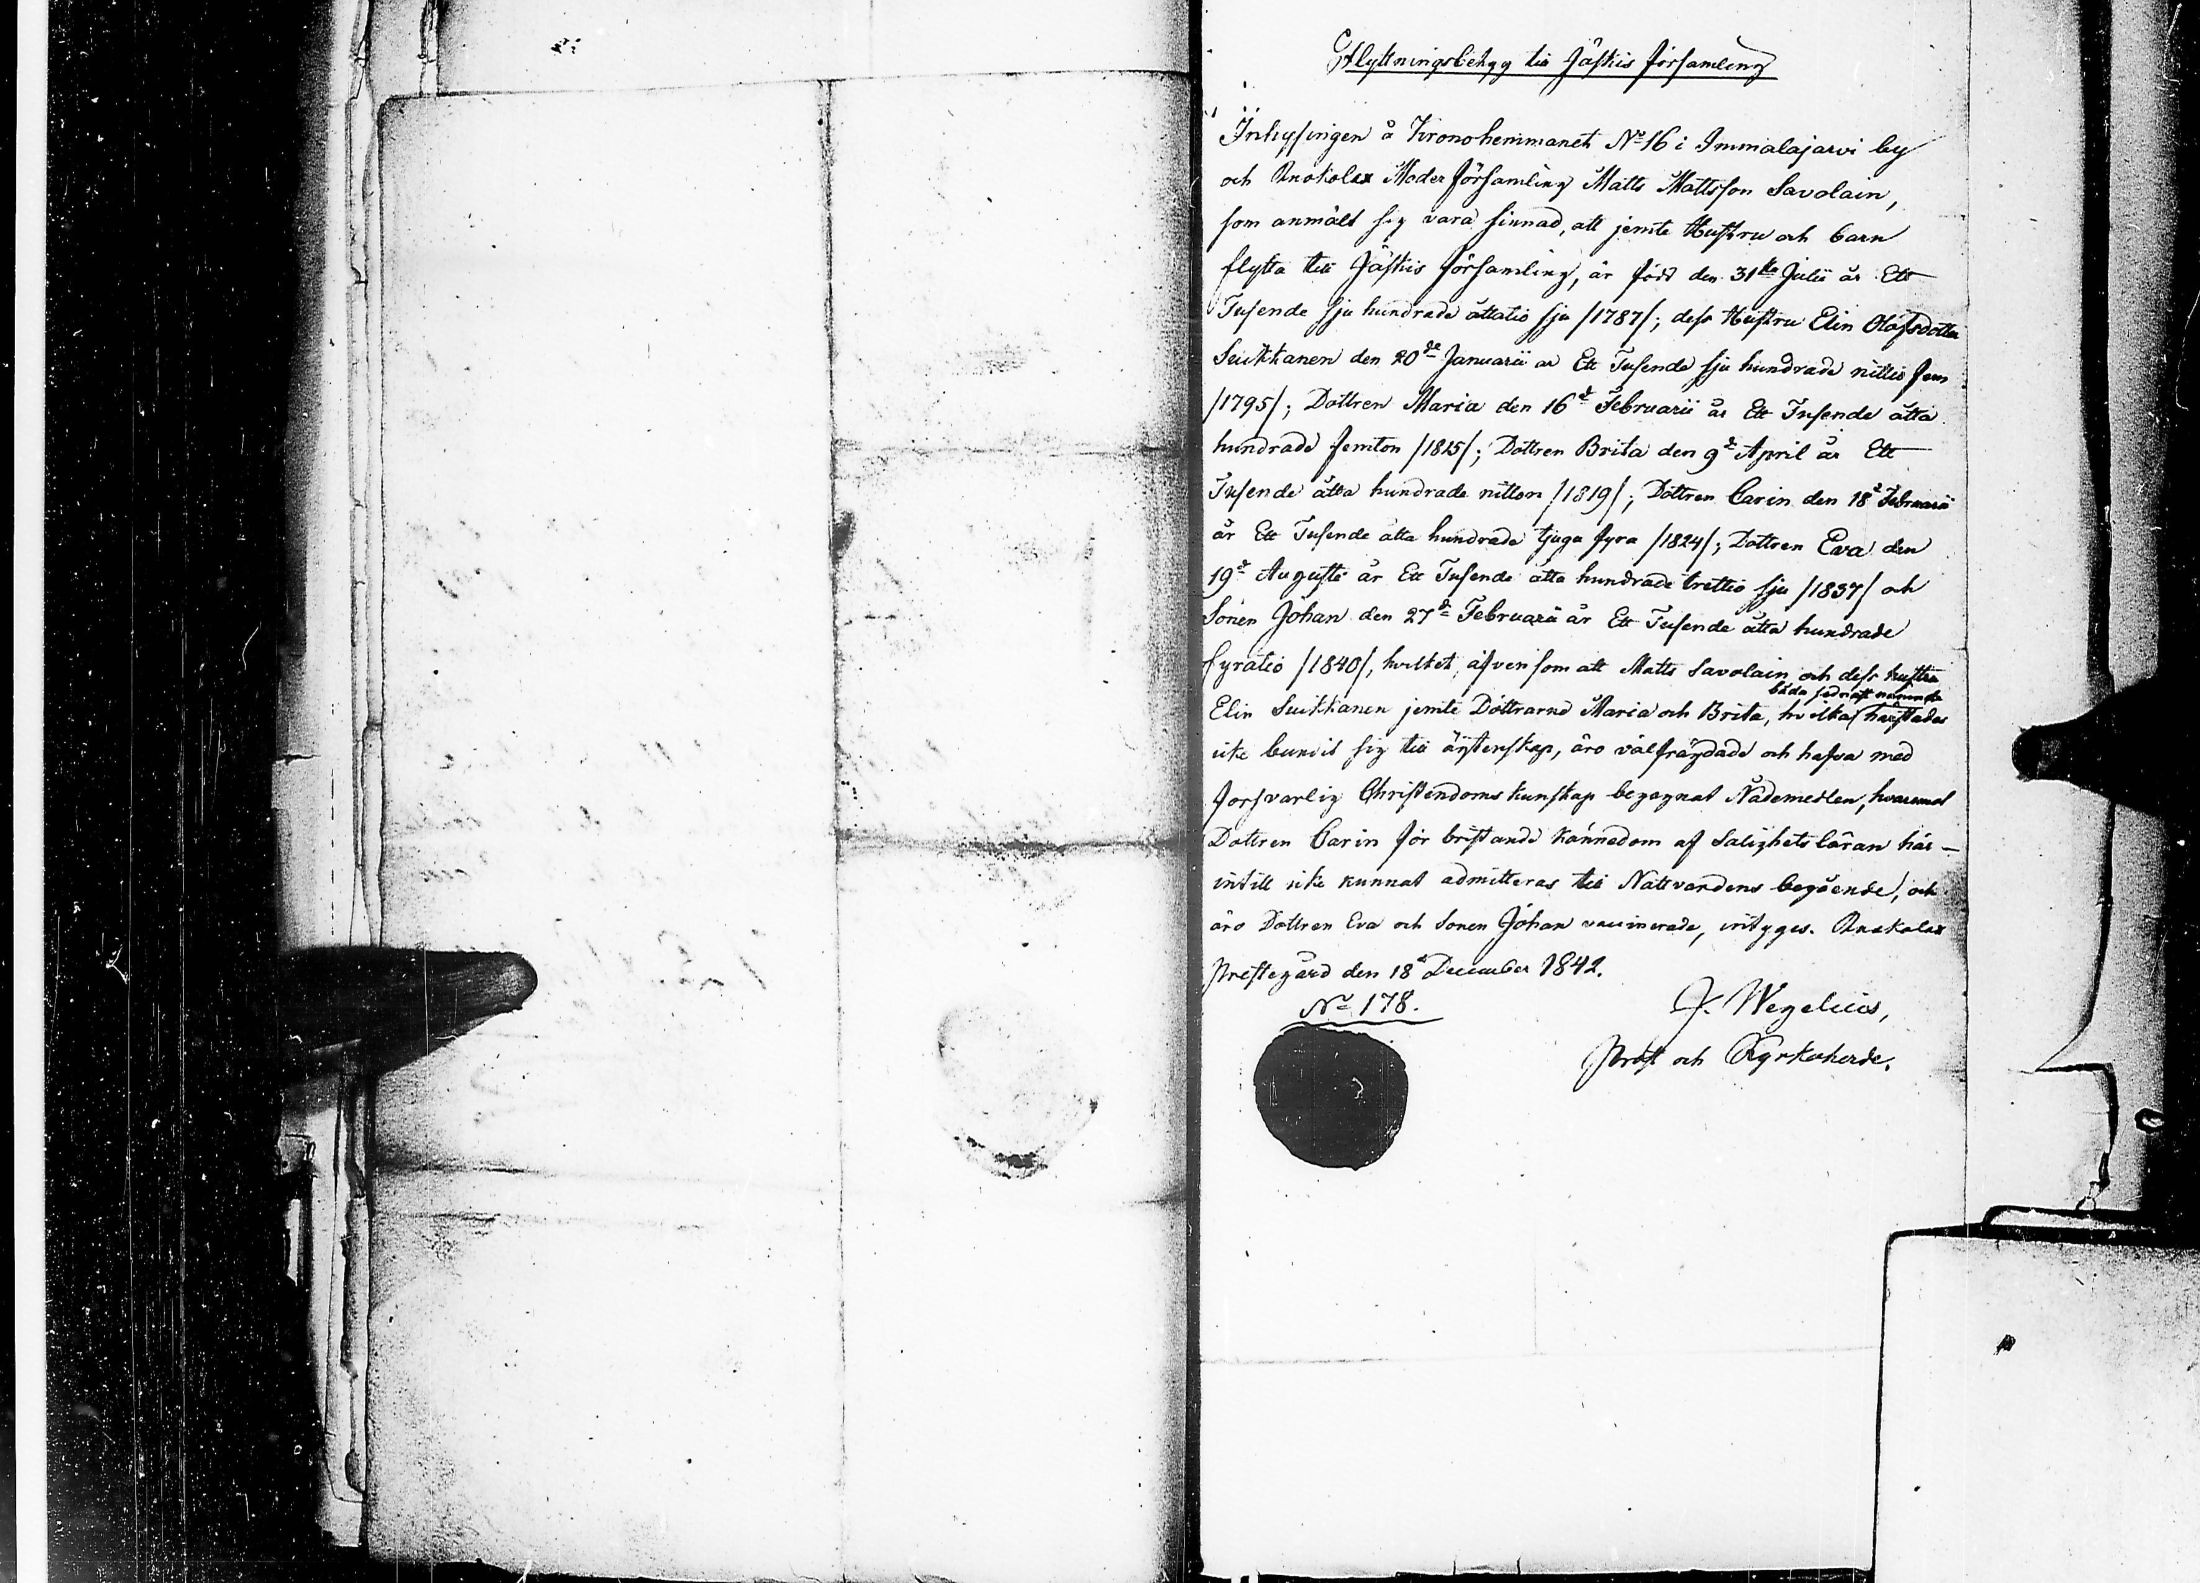 Utflyttningsbetyg till Jäskis församling
Inhysingen å Kronohemmanet No 16 i Immalajarvi by
och Ruokolax Moder församling Matts Mattsson Savolain,
som anmält sig vara sinnad, att jemte Hustru och barn
flytta till Jäskis församling, är född den 31sta Julii år Ett
Tusende sju hundrade åttatio sju /1787/; dess Hustru Elin Olofsdotter
Suikkanen den 20de Januarii år Ett Tusende sju hundrade nittio fem
/1795/; Dottren Maria den 16d Februarii år Ett Tusende åtta
hundrade femton /1815/; Dottren Brita den 9d April år Ett
Tusende åtta hundrade nitton /1819/; Dottren Carin den 18d Februarii
år Ett Tusende åtta hundrade tjugu fyra /1824/; Dottren Eva den
19d Augusti år Ett Tusende åtta hundrade trettio sju /1837/ och
Sonen Johan den 27d Februarii år Ett Tusende åtta hundrade
fyratio /1840/, hvilket, äfvensom att Matts Savolain och dess hustru
båda sednast nämnde
Elin Suikkanen jemte Döttrarne Maria och Brita, hvilka härstädes
icke bundit sig till ägtenskap, äro välfrägdade och hafva med
forsvarlig Christendoms kunskap begagnat Nådemedlen, hvaremot
Dottren Carin för bristande kännedom af Salighets läran här-
intill icke kunnat admitteras till Nattvardens begående, och
äro Dottren Eva och Sonen Johan vaccinerade, intygas. Ruokolax
Prestegård den 18d December 1842.
No 178.
J. Wegelius,
Prost och Kyrkoherde.